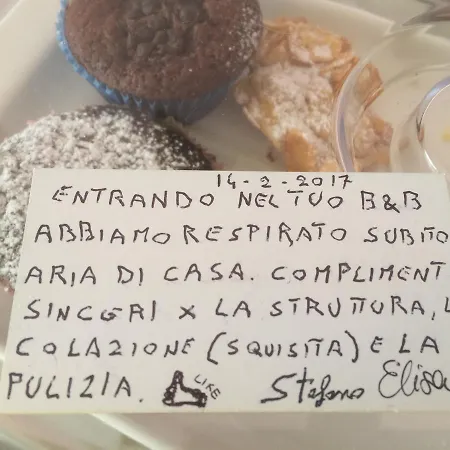 14-2-2017
ENTRANDO NEL TUO B&B
ABBIAMO RESPIRATO SUBITO
ARIA DI CASA. COMPLIMENT
SINCERI X LA STRUTTURA, L
COLAZIONE (SQUISITA) E LA
PULIZIA. LIKE Stefano Elisa